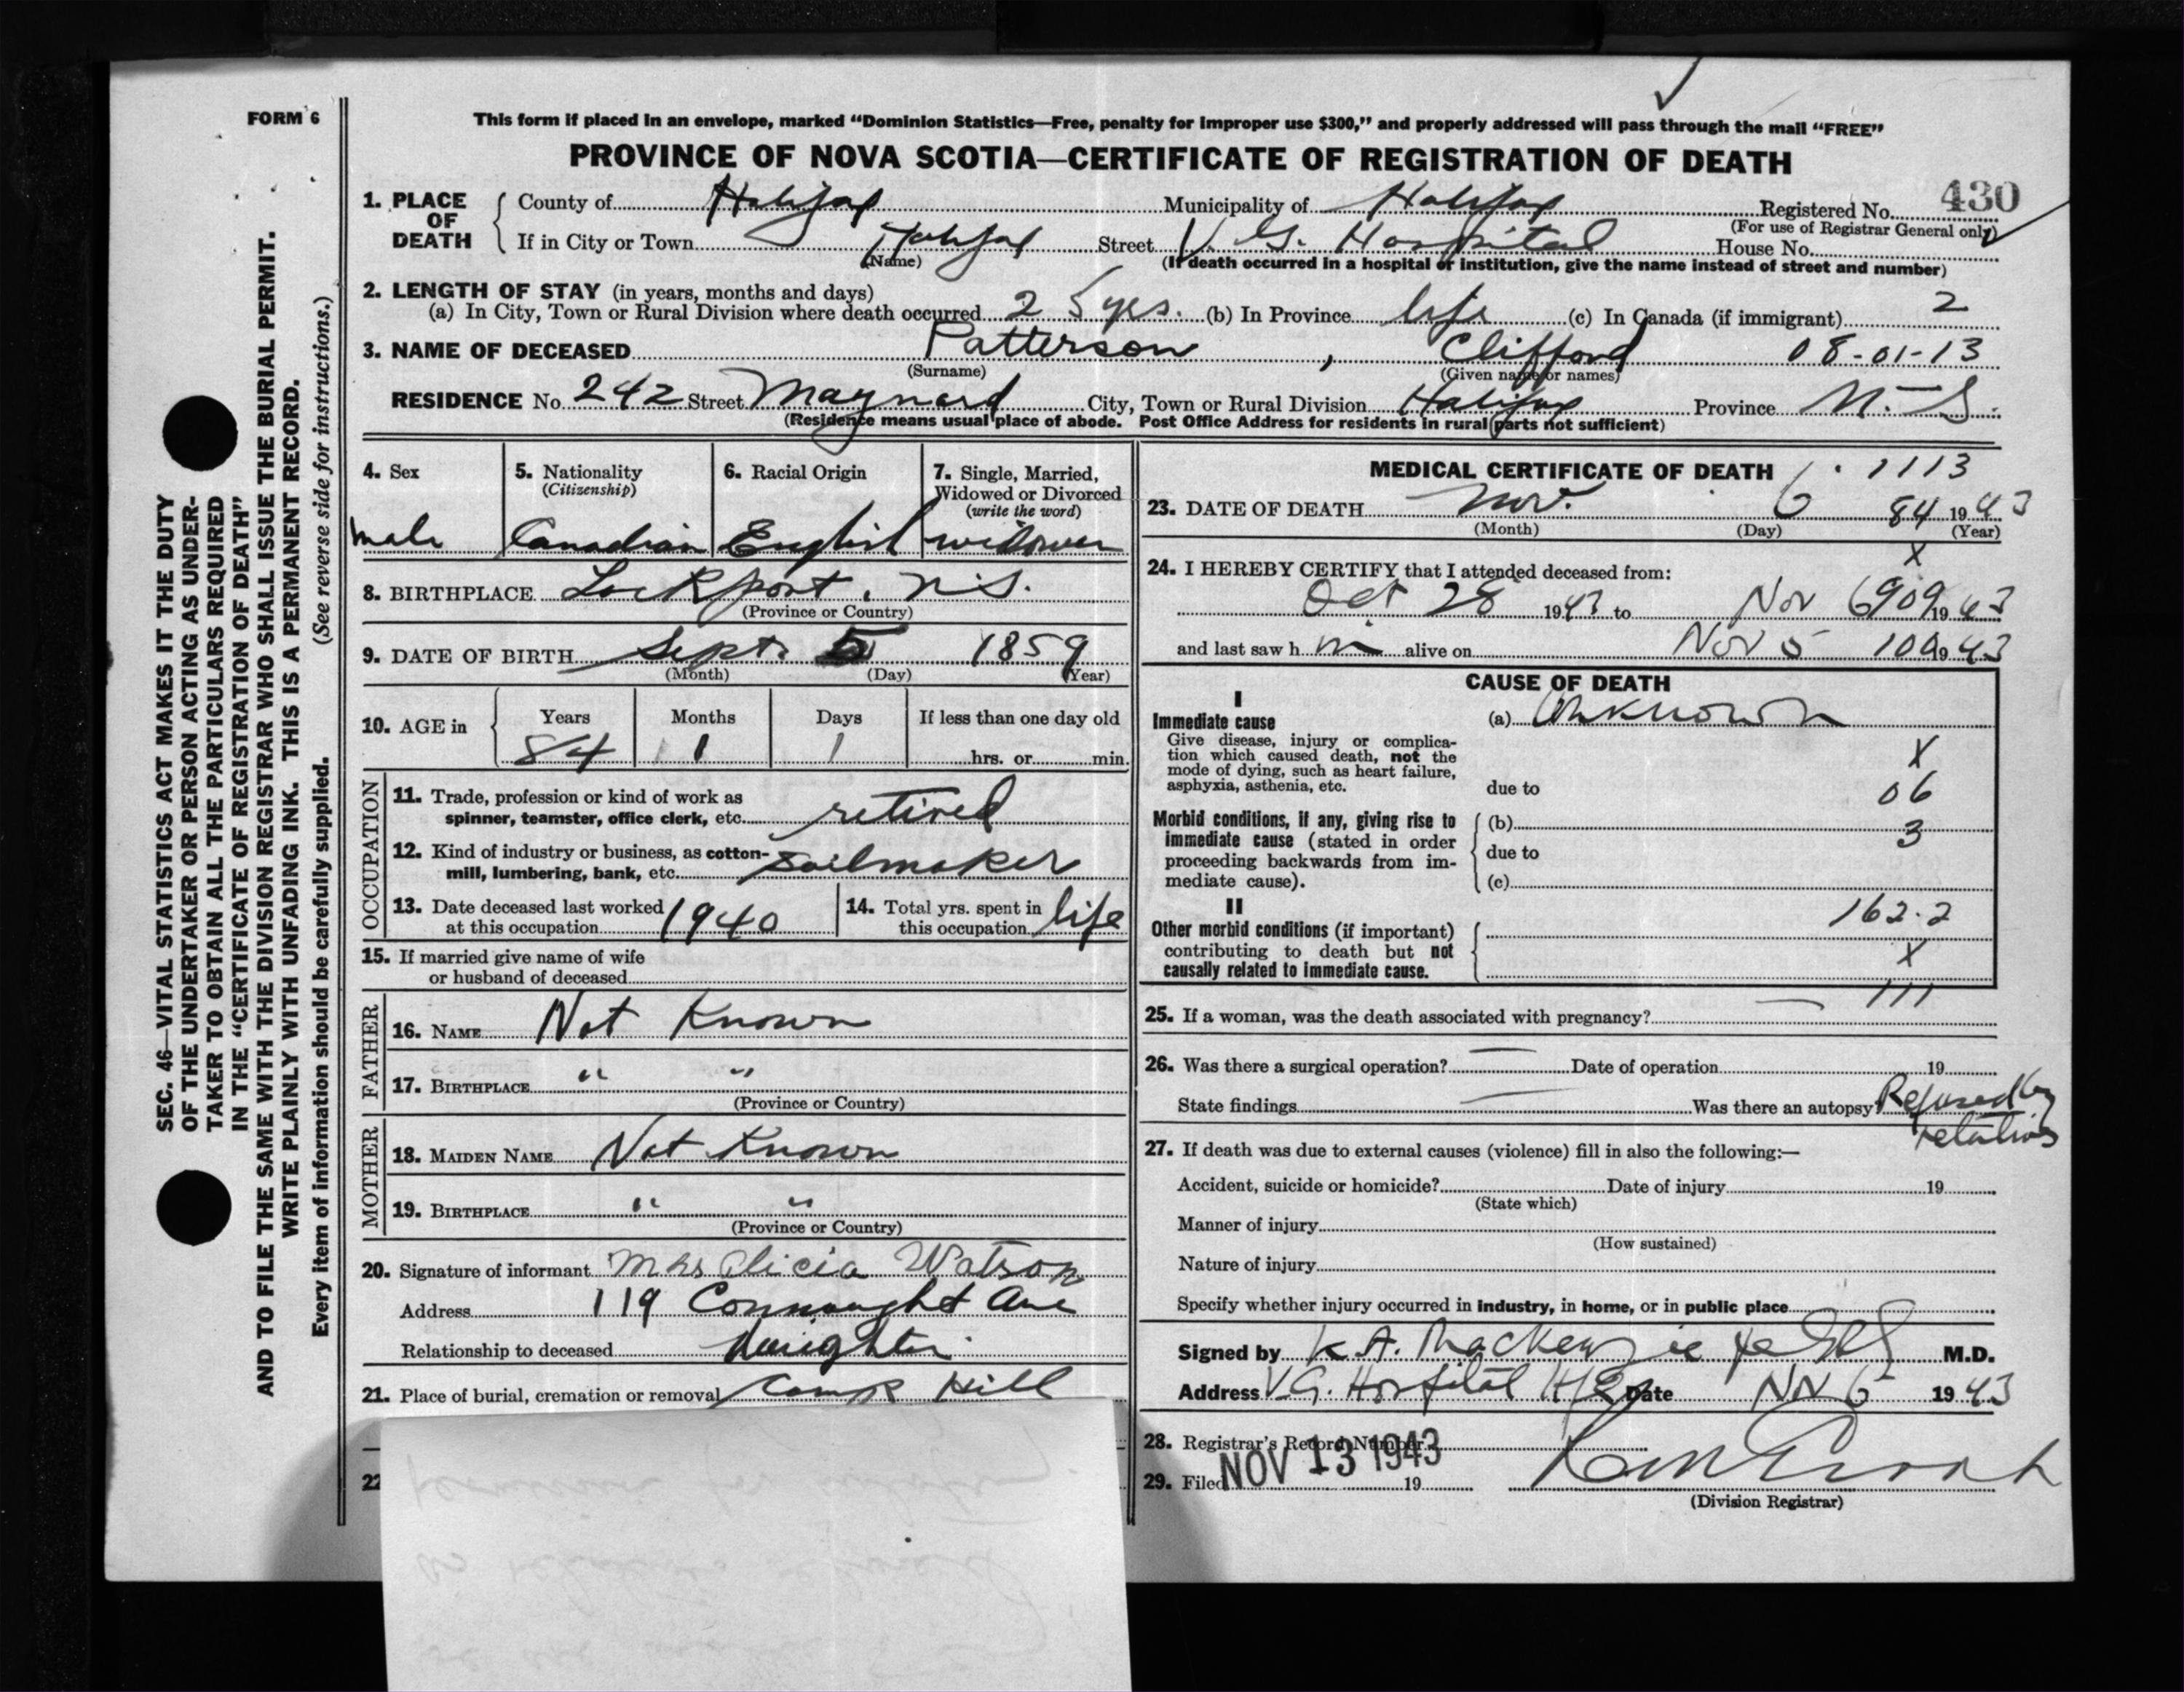 FORM 6
This form if placed in an envelope, marked “Dominion Statistics—Free, penalty for improper use $300,” and properly addressed will pass through the mail “FREE”
PROVINCE OF NOVA SCOTIA—CERTIFICATE OF REGISTRATION OF DEATH
430
1. PLACE OF DEATH County of Halifax Municipality of Halifax Registered No.
(For use of Registrar General only)
If in City or Town Halifax Street V. G. Hospital House No.
(Name) (If death occurred in a hospital or institution, give the name instead of street and number)
2. LENGTH OF STAY (in years, months and days)
(a) In City, Town or Rural Division where death occurred 25 yrs. (b) In Province life (c) In Canada (if immigrant) 2
3. NAME OF DECEASED Patterson , Clifford 08-01-13
(Surname) (Given name or names)
RESIDENCE No. 242 Street Maynard City, Town or Rural Division Halifax Province N.S.
(Residence means usual place of abode. Post Office Address for residents in rural parts not sufficient)
4. Sex
male
5. Nationality
(Citizenship)
Canadian
6. Racial Origin
English
7. Single, Married,
Widowed or Divorced
(write the word)
widower
8. BIRTHPLACE Lockport, N.S.
(Province or Country)
9. DATE OF BIRTH Sept. 5 1859
(Month) (Day) (Year)
10. AGE in Years Months Days If less than one day old
84 1 1 hrs. or min.
OCCUPATION
11. Trade, profession or kind of work as
spinner, teamster, office clerk, etc. retired
12. Kind of industry or business, as cotton-
mill, lumbering, bank, etc. sailmaker
13. Date deceased last worked
at this occupation 1940
14. Total yrs. spent in
this occupation life
15. If married give name of wife
or husband of deceased
FATHER
16. NAME Not Known
17. BIRTHPLACE " "
(Province or Country)
MOTHER
18. MAIDEN NAME Not Known
19. BIRTHPLACE " "
(Province or Country)
20. Signature of informant Mrs Alicia Watson
Address 119 Connaught Ave
Relationship to deceased Daughter
21. Place of burial, cremation or removal Camp Hill
22
MEDICAL CERTIFICATE OF DEATH 1113
23. DATE OF DEATH Nov. 6 84 1943
(Month) (Day) (Year)
X
24. I HEREBY CERTIFY that I attended deceased from:
Oct 28 1943 to Nov 6 909 1943
and last saw h m alive on Nov 5 100 1943
CAUSE OF DEATH
I
Immediate cause (a) Unknown
Give disease, injury or complica-
tion which caused death, not the
mode of dying, such as heart failure,
asphyxia, asthenia, etc. due to
X
06
Morbid conditions, if any, giving rise to
immediate cause (stated in order
proceeding backwards from im-
mediate cause).
(b) 3
due to
(c)
II
162.2
Other morbid conditions (if important)
contributing to death but not
causally related to immediate cause.
X
111
25. If a woman, was the death associated with pregnancy? —
26. Was there a surgical operation? — Date of operation 19
State findings — Was there an autopsy? Refused by
relatives
27. If death was due to external causes (violence) fill in also the following:—
Accident, suicide or homicide? Date of injury 19
(State which)
Manner of injury
(How sustained)
Nature of injury
Specify whether injury occurred in industry, in home, or in public place
Signed by K. A. Mackenzie M.D.
Address V.G. Hospital Hfx Date Nov 6 1943
28. Registrar's Record Number
29. Filed NOV 13 1943 19
(Division Registrar)
SEC. 46—VITAL STATISTICS ACT MAKES IT THE DUTY
OF THE UNDERTAKER OR PERSON ACTING AS UNDER-
TAKER TO OBTAIN ALL THE PARTICULARS REQUIRED
IN THE “CERTIFICATE OF REGISTRATION OF DEATH”
AND TO FILE THE SAME WITH THE DIVISION REGISTRAR WHO SHALL ISSUE THE BURIAL PERMIT.
WRITE PLAINLY WITH UNFADING INK. THIS IS A PERMANENT RECORD.
Every item of information should be carefully supplied. (See reverse side for instructions.)